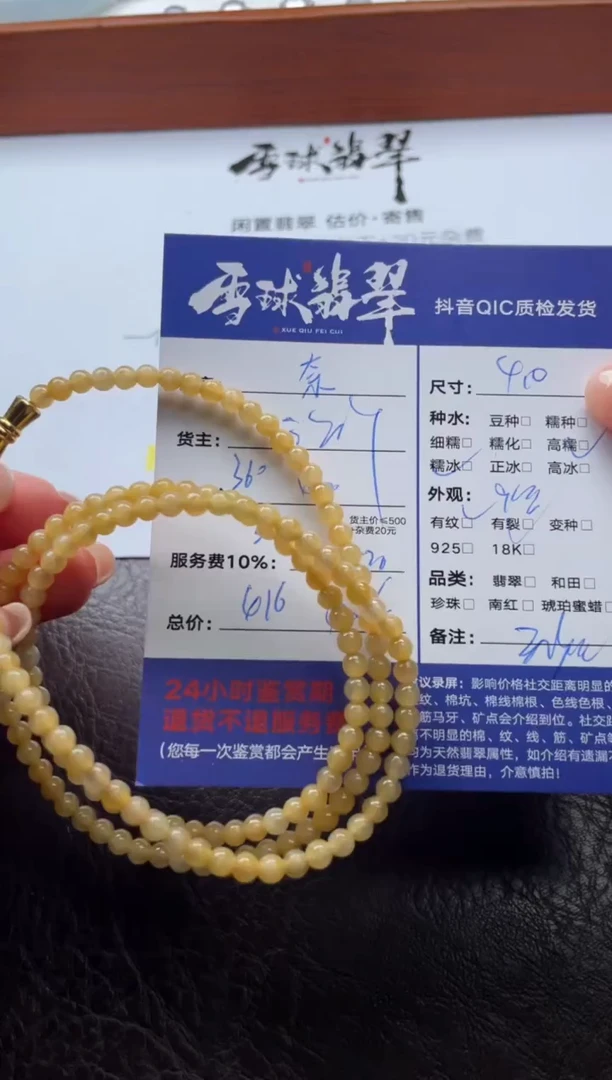 雪球翡翠
闲置翡翠 估价·寄售
雪球翡翠
XUE QIU FEI CUI
抖音QIC质检发货
奈
货主：
360
货主价≤500
杂费20元
服务费10%：
20
总价： 616
24小时鉴赏期
退货不退服务费
(您每一次鉴赏都会产生
尺寸： 410
种水： 豆种□ 糯种□
细糯□ 糯化□ 高糯□
糯冰□ 正冰□ 高冰□
外观：
有纹□ 有裂□ 变种□
925□ 18K□
品类： 翡翠□ 和田□
珍珠□ 南红□ 琥珀蜜蜡□
备注：
议录屏：影响价格社交距离明显的
纹、棉坑、棉线棉根、色线色根、
筋马牙、矿点会介绍到位。社交
不明显的棉、纹、线、筋、矿点
均为天然翡翠属性，如介绍有遗漏不
作为退货理由，介意慎拍！